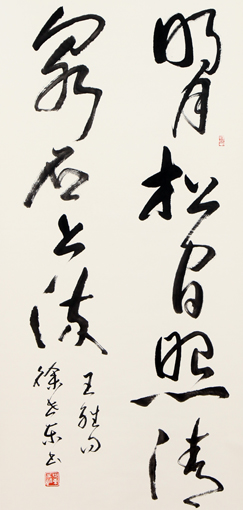 明月松间照清
泉石上流
王维句
徐世东书